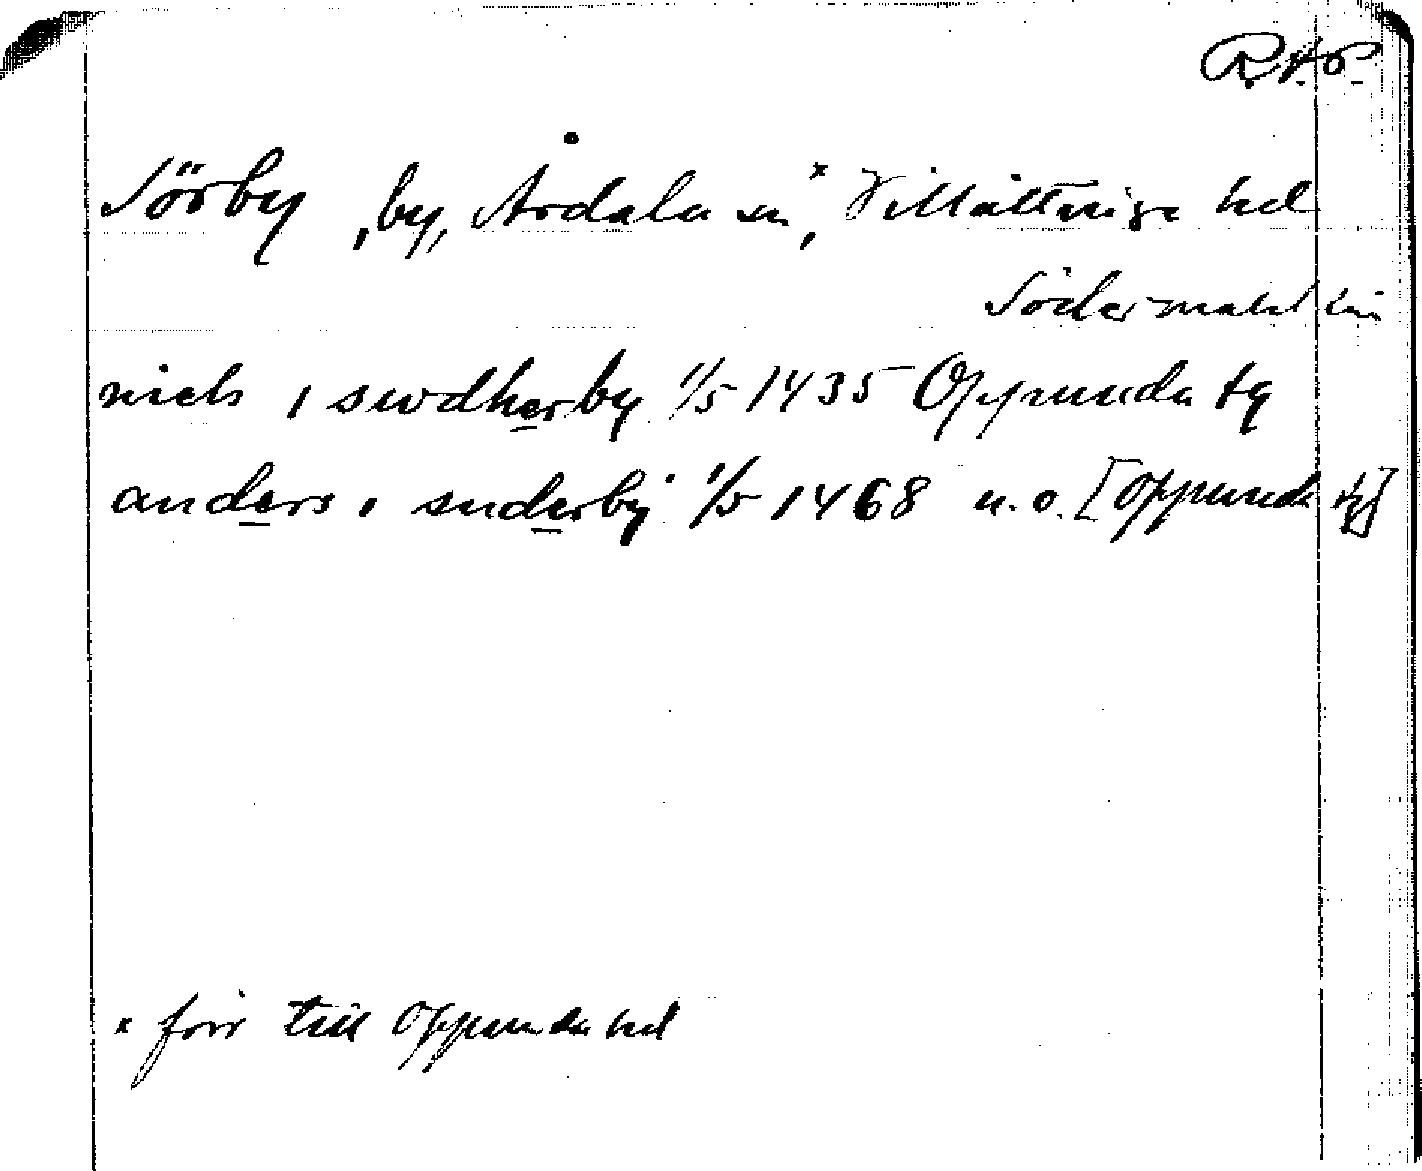 R.A.P.
Sörby, by, Årdala sn*, Villåttinge hd
Södermanl län
niels i swdherby 1/5 1435 Oppunda tg
anders i suderby 1/5 1468 u.o. [Oppunda tg]
* förr till Oppunda hd